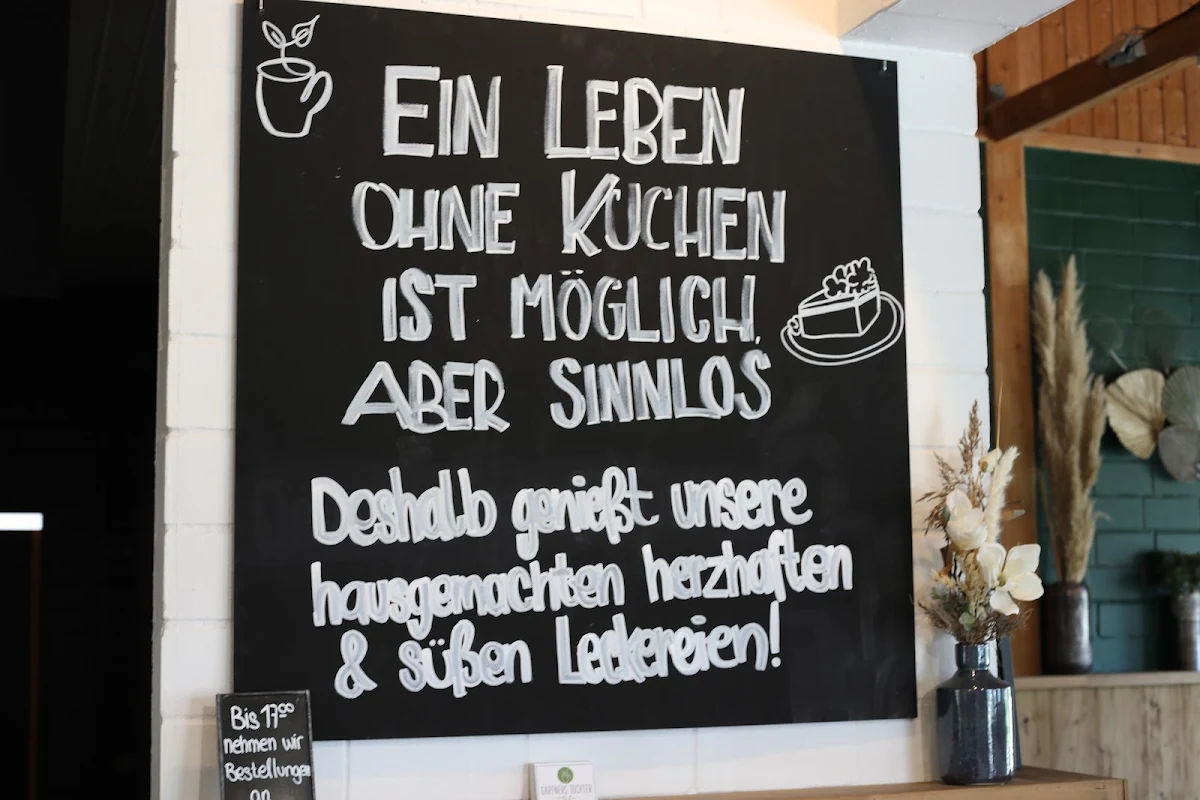 EIN LEBEN
OHNE KUCHEN
IST MÖGLICH,
ABER SINNLOS
Deshalb genießt unsere
hausgemachten herzhaften
& süßen Leckereien!
Bis 17⁰⁰
nehmen wir
Bestellungen
an
GÄRTNERS TOCHTER